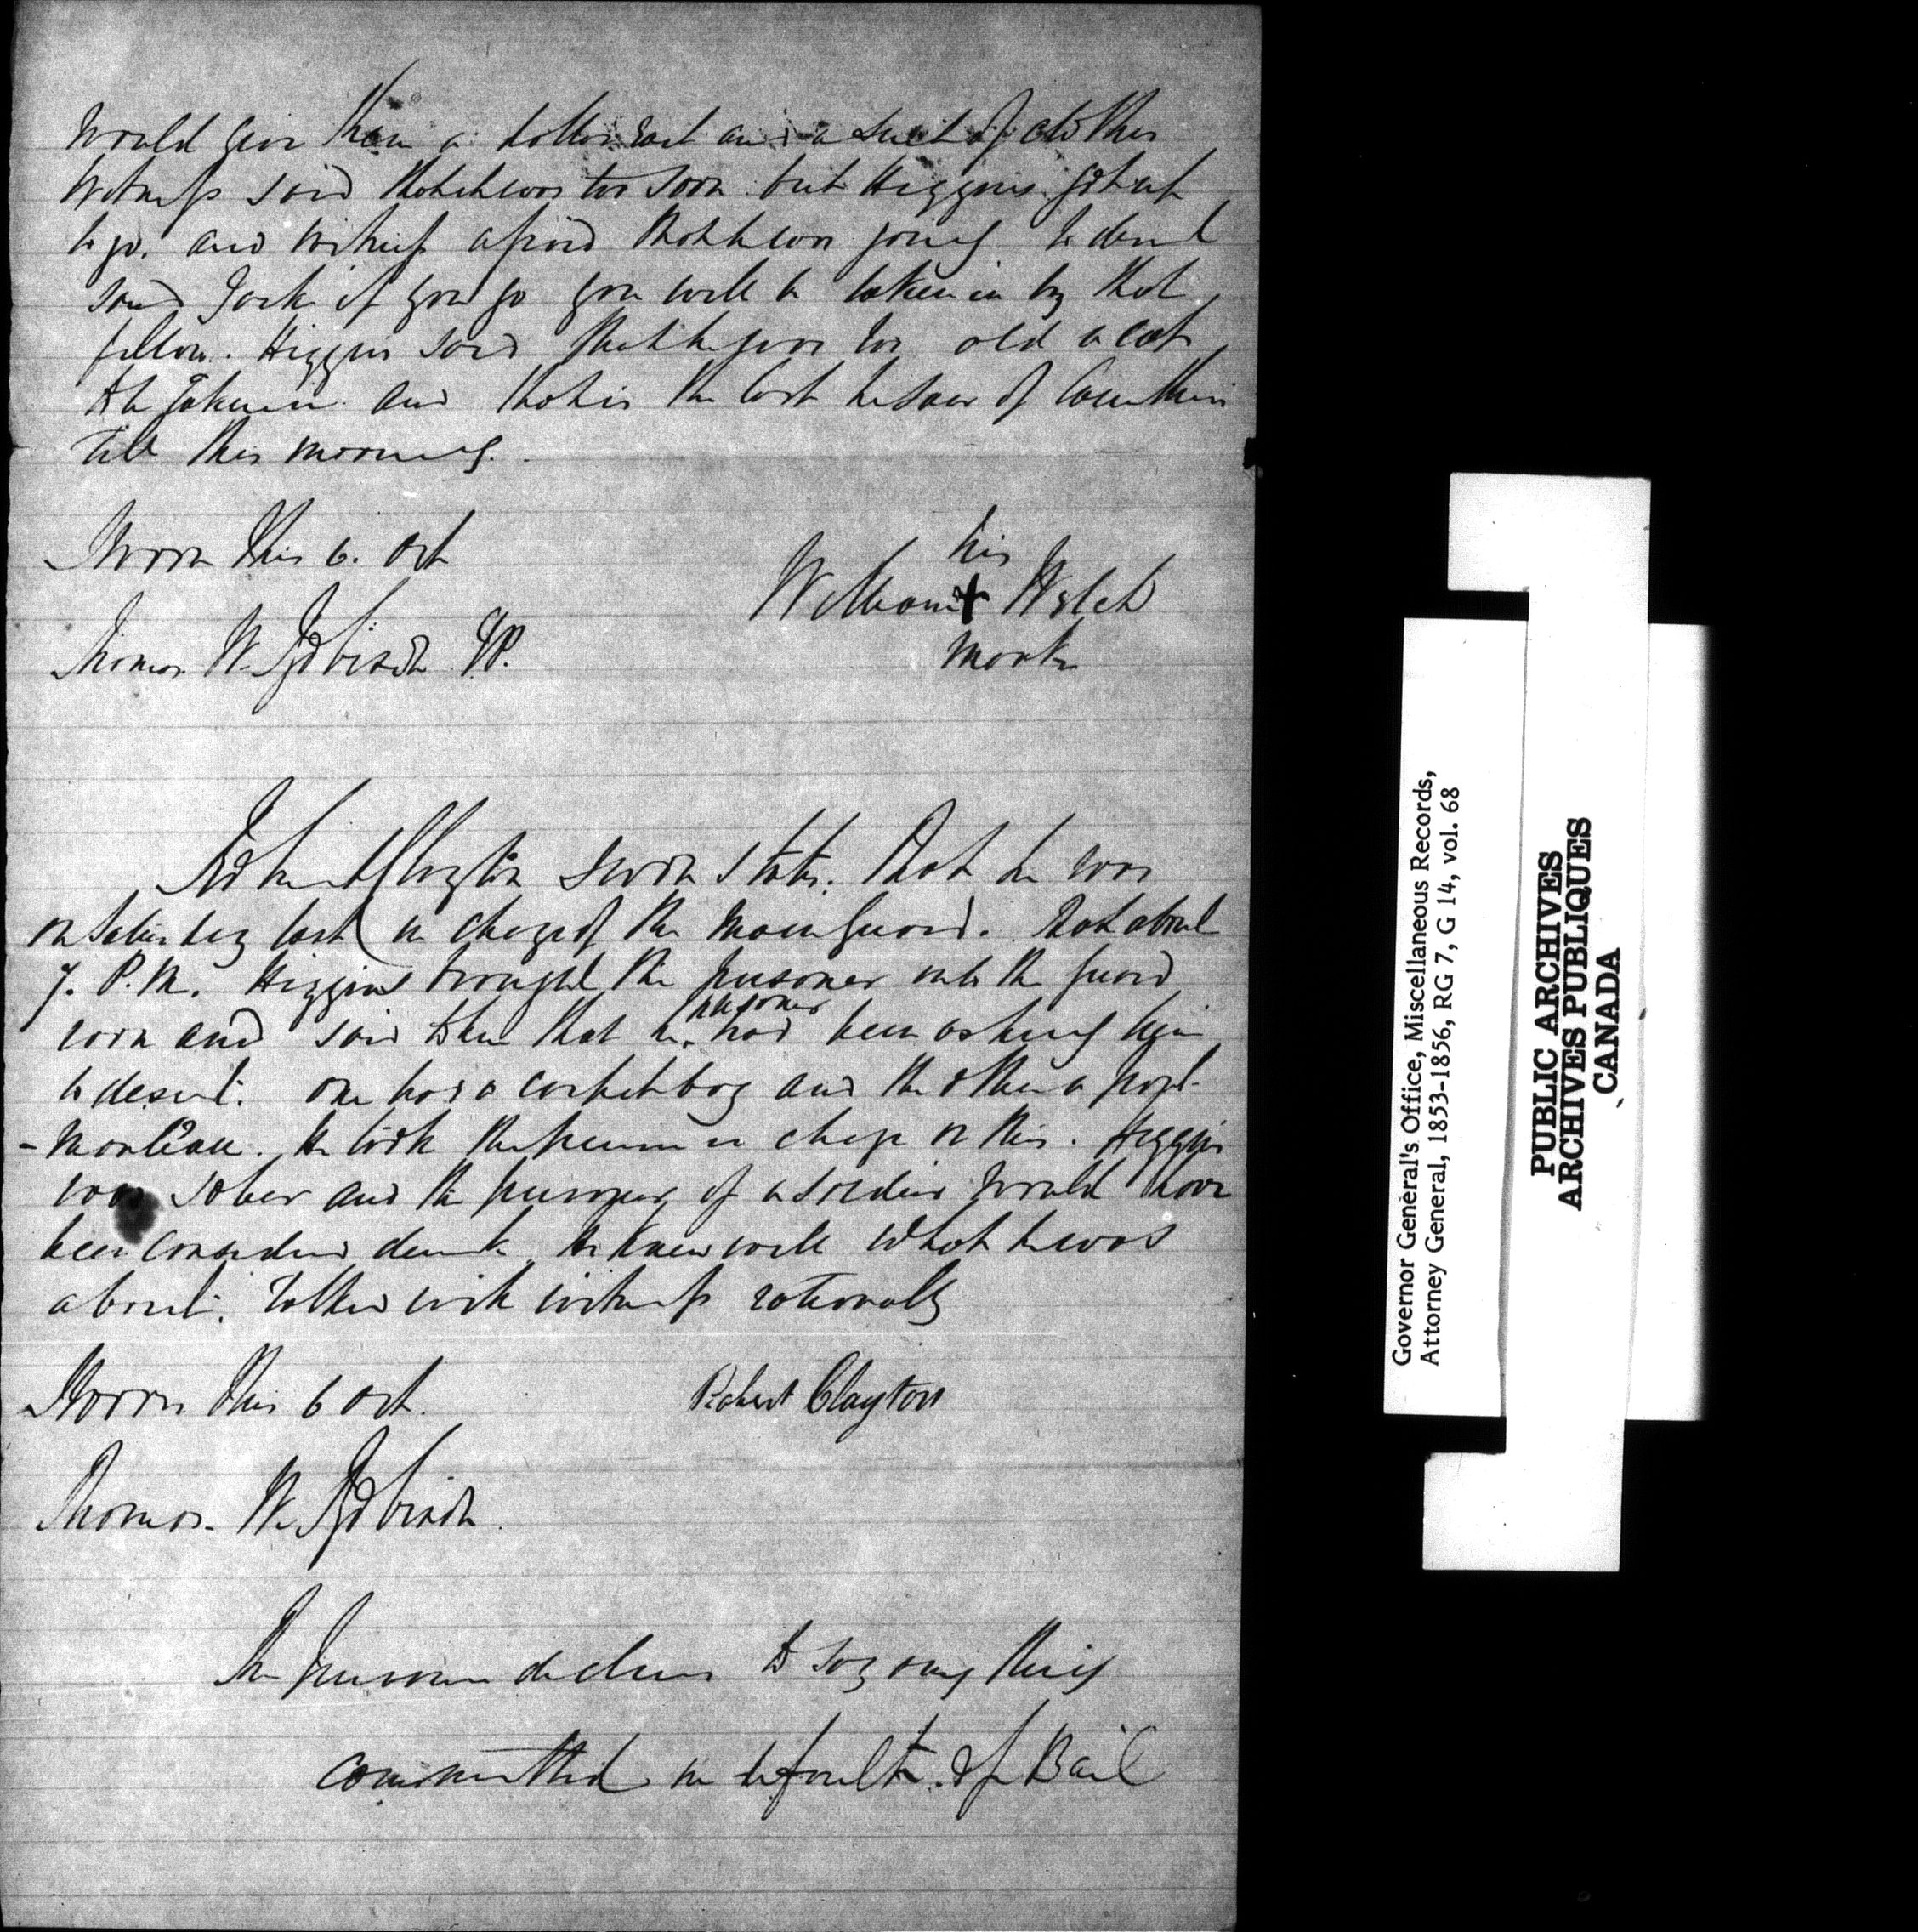 would give them a dollar each and a suit of clothes
Witness said that it was too soon but Higgins got up
to go. and witness afraid that he was going to desert
said Jack if you go you will be taken in by that
fellow. Higgins said that he was too old a cat
to be taken in and that is the last he saw of them
till this morning.
Sworn this 6. Oct
his
William + Welch
mark
Thomas W. Robison JP.
Robert Clayton sworn states. That he was
on Saturday last in charge of the Main guard. That about
7. P.M. Higgins brought the prisoner into the guard
room and said to him that he prisoner had been asking him
to desert. one had a carpet bag and the other a port-
-manteau. He took the prisoner in charge on this. Higgins
was sober and the prisoner if a soldier would have
been considered drunk, He knew well what he was
about. Talked with witness rationally
Sworn this 6 Oct.
Robert Clayton
Thomas. W. Robison
The prisoner declines to say any thing
committed in default of Bail
Governor General's Office, Miscellaneous Records,
Attorney General, 1853-1856, RG 7, G 14, vol. 68
PUBLIC ARCHIVES
ARCHIVES PUBLIQUES
CANADA